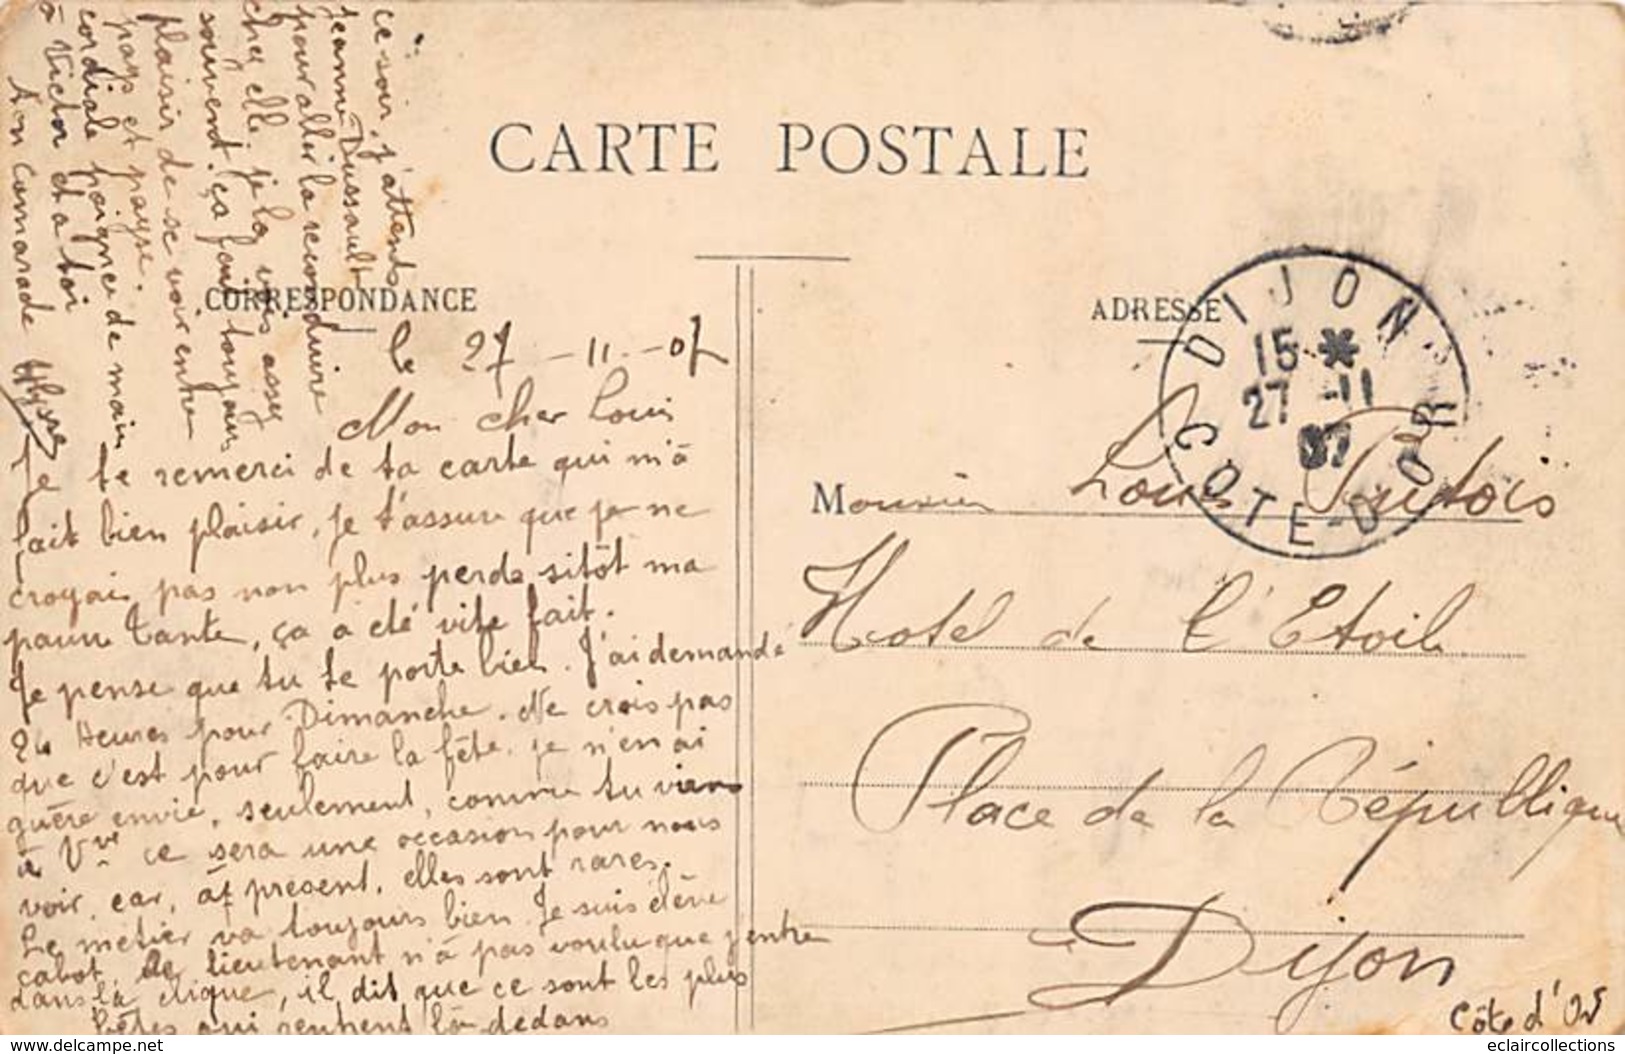 CARTE POSTALE
CORRESPONDANCE
ADRESSE
le 27 - 11 - 07
Mon cher Louis
Je te remerci de ta carte qui m'à
fait bien plaisir, je t'assure que je ne
croyais pas non plus perdre sitôt ma
pauvre Tante, ça a été vite fait.
Je pense que tu te porte bien. J'ai demandé
24 Heures pour Dimanche. Ne crois pas
que c'est pour faire la fête. je n'en ai
guère envie, seulement, comme tu viens
à Vve ce sera une occasion pour nous
voir, car, àt present, elles sont rares.
Le métier va toujours bien. Je suis élève
cabot, le lieutenant n'à pas voulu que j'entre
dans la clique, il dit que ce sont les plus
bêtes qui rentrent là dedans
ce soir, j'attends
Jeanne Dussault
pour aller la reconduire
chez elle, je la vois assez
souvent. ça fait toujours
plaisir de se voir entre
pays et payse.
cordiale poignée de main
à Victor et à toi
ton camarade Ulysse
Monsieur Louis
Hotel de l'Etoile
Place de la République
Dijon
Côte d'Or
DIJON
15 *
27 -11
07
COTE-D'OR
delcampe.net
eclaircollections